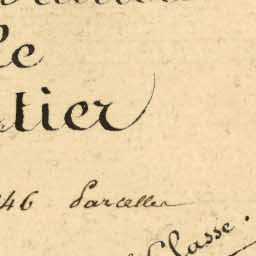 le
tier
46 Parcelles
Classe.